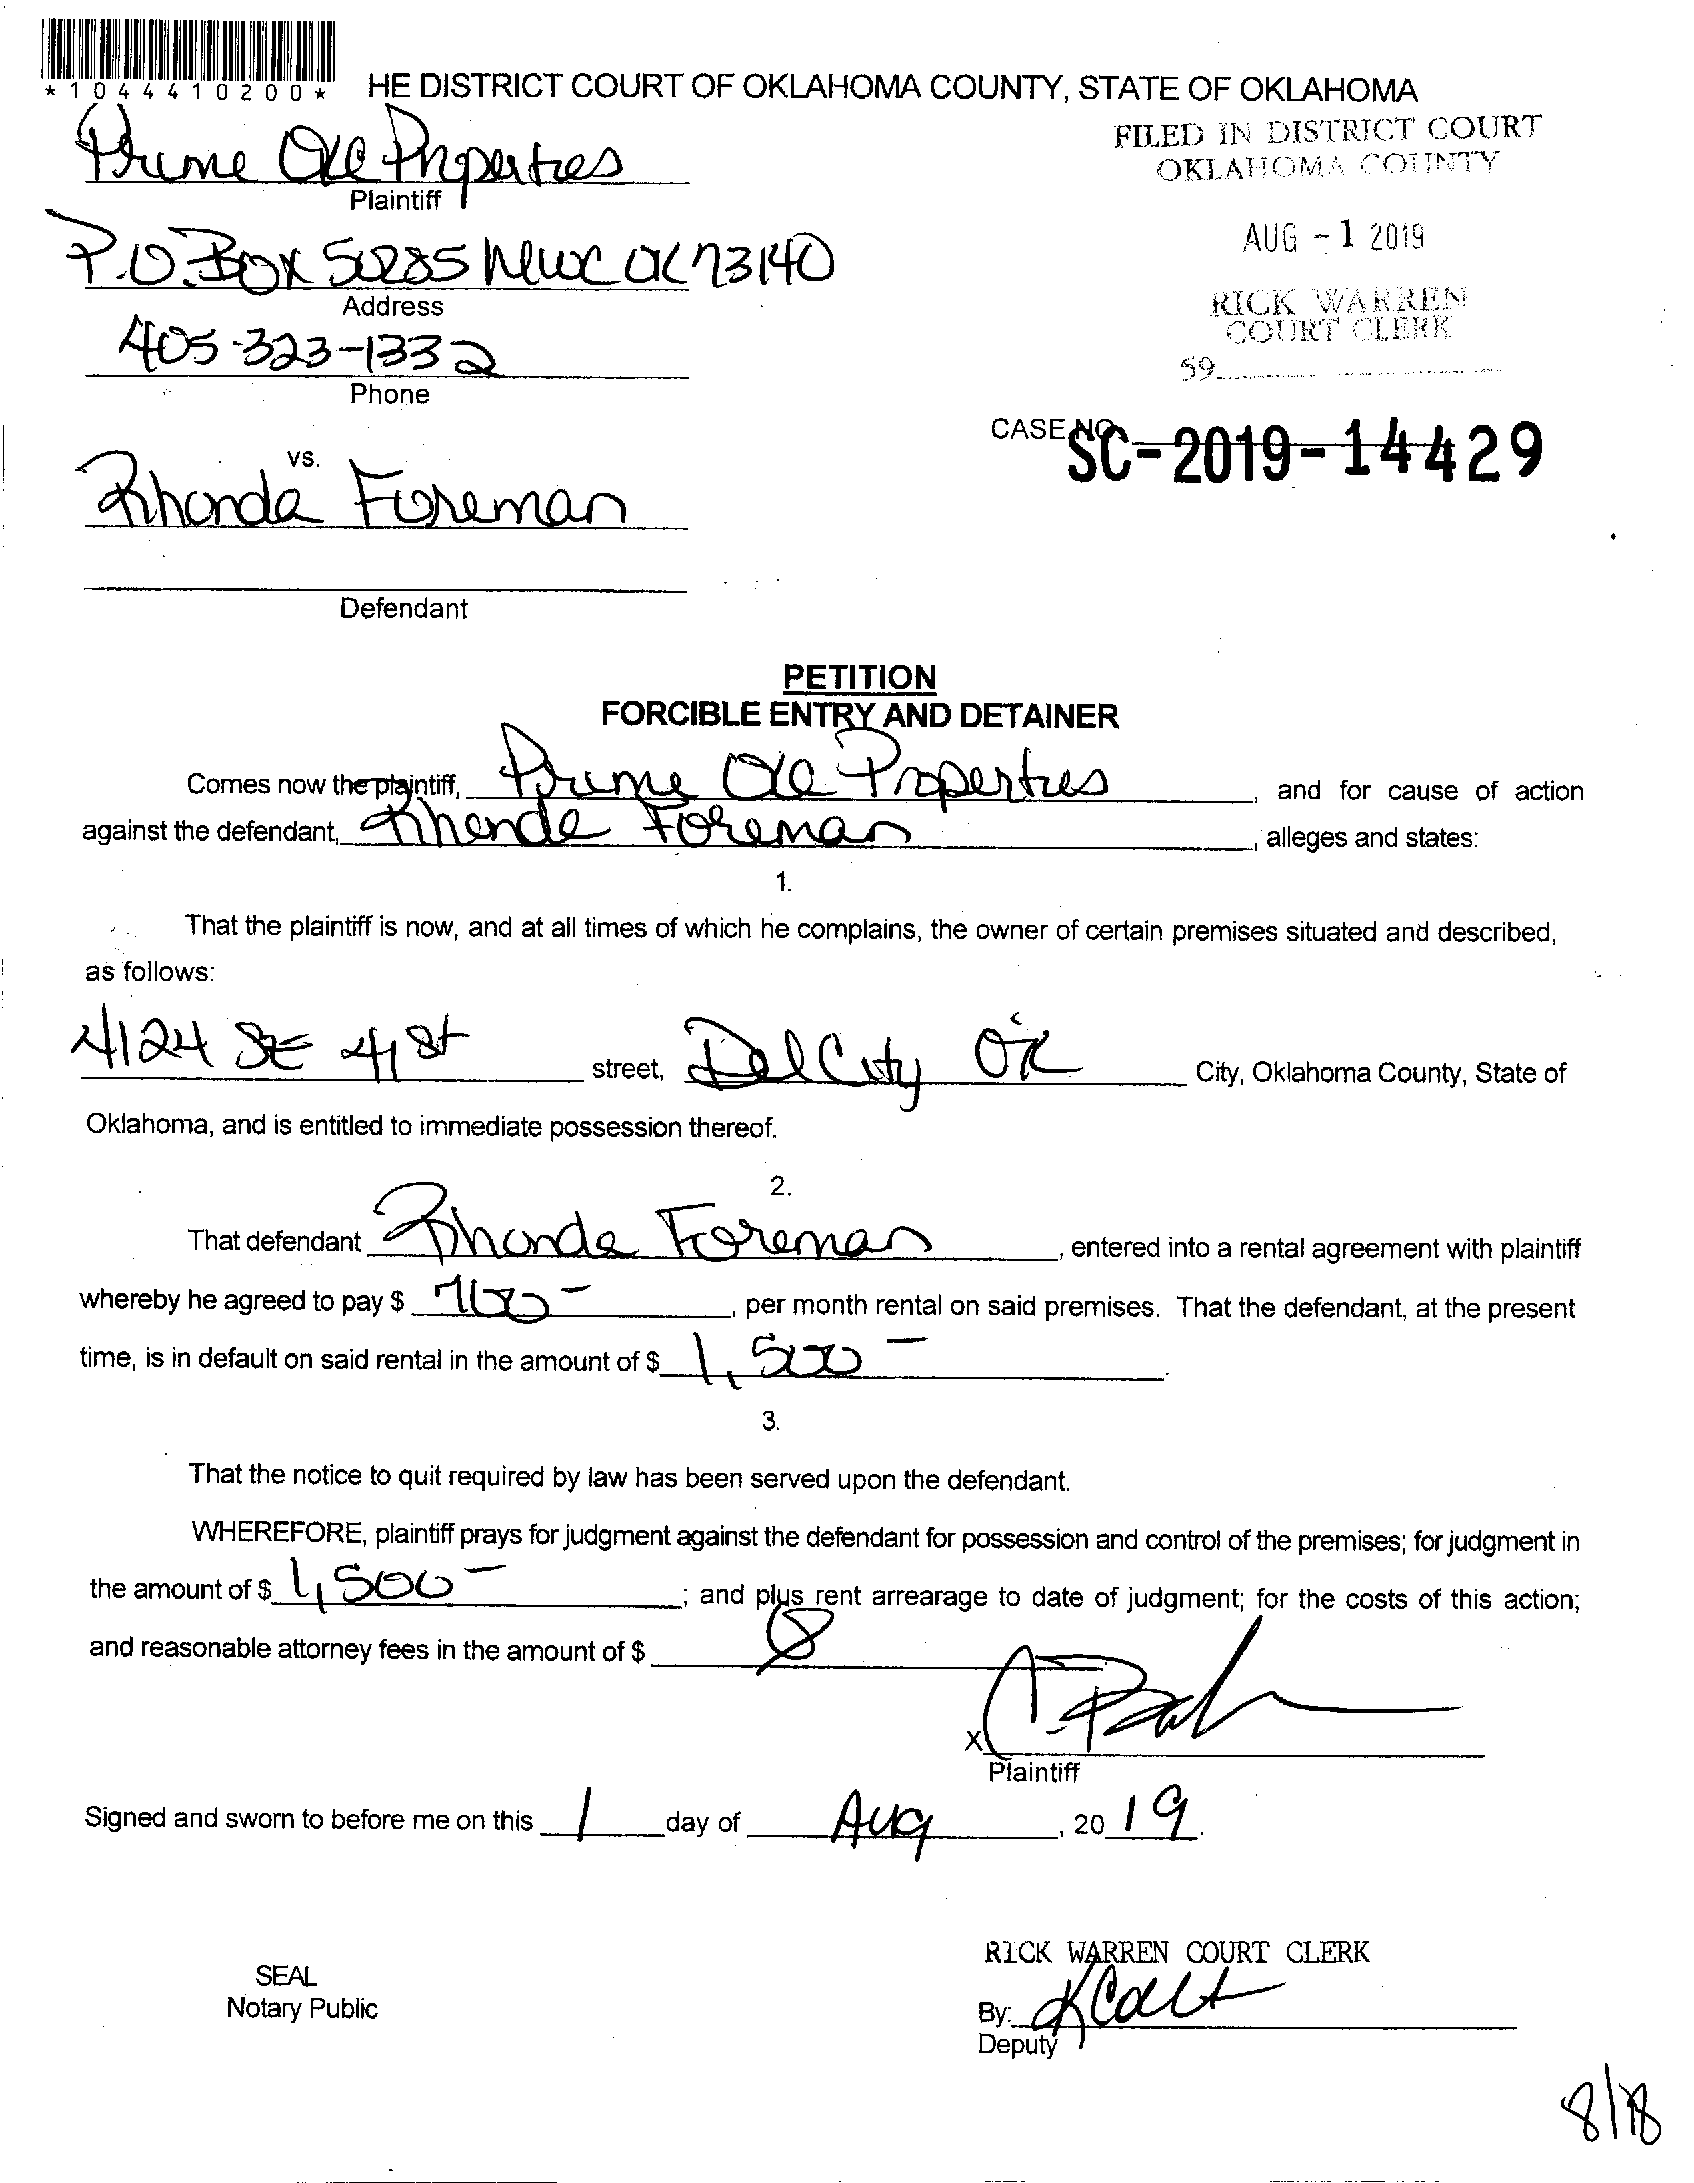 *1044410200*
HE DISTRICT COURT OF OKLAHOMA COUNTY, STATE OF OKLAHOMA
FILED IN DISTRICT COURT
OKLAHOMA COUNTY
Prime Properties
Plaintiff
AUG - 1 2019
P.O. Box MWC OK 73140
Address
RICK WARREN
COURT CLERK
405-323-1332
59
Phone
CASE NO.
SC-2019-14429
vs.
Rhonda Foreman
Defendant
PETITION
FORCIBLE ENTRY AND DETAINER
Comes now the plaintiff, Prime Properties, and for cause of action
against the defendant, Rhonda Foreman, alleges and states:
1.
That the plaintiff is now, and at all times of which he complains, the owner of certain premises situated and described,
as follows:
4124 SE 41st street, Del City OK City, Oklahoma County, State of
Oklahoma, and is entitled to immediate possession thereof.
2.
That defendant Rhonda Foreman, entered into a rental agreement with plaintiff
whereby he agreed to pay $ , per month rental on said premises. That the defendant, at the present
time, is in default on said rental in the amount of $ 1,500-
3.
That the notice to quit required by law has been served upon the defendant.
WHEREFORE, plaintiff prays for judgment against the defendant for possession and control of the premises; for judgment in
the amount of $ 1,500- ; and plus rent arrearage to date of judgment; for the costs of this action;
and reasonable attorney fees in the amount of $
X
Plaintiff
Signed and sworn to before me on this 1 day of Aug, 2019.
RICK WARREN COURT CLERK
SEAL
Notary Public
By:
Deputy
8/18